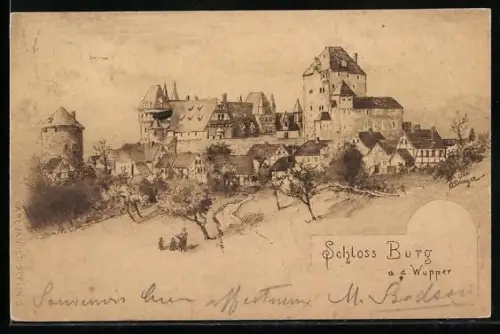 Schloss Burg
a. d. Wupper
Souvenirs bien affectueux M. Bodson